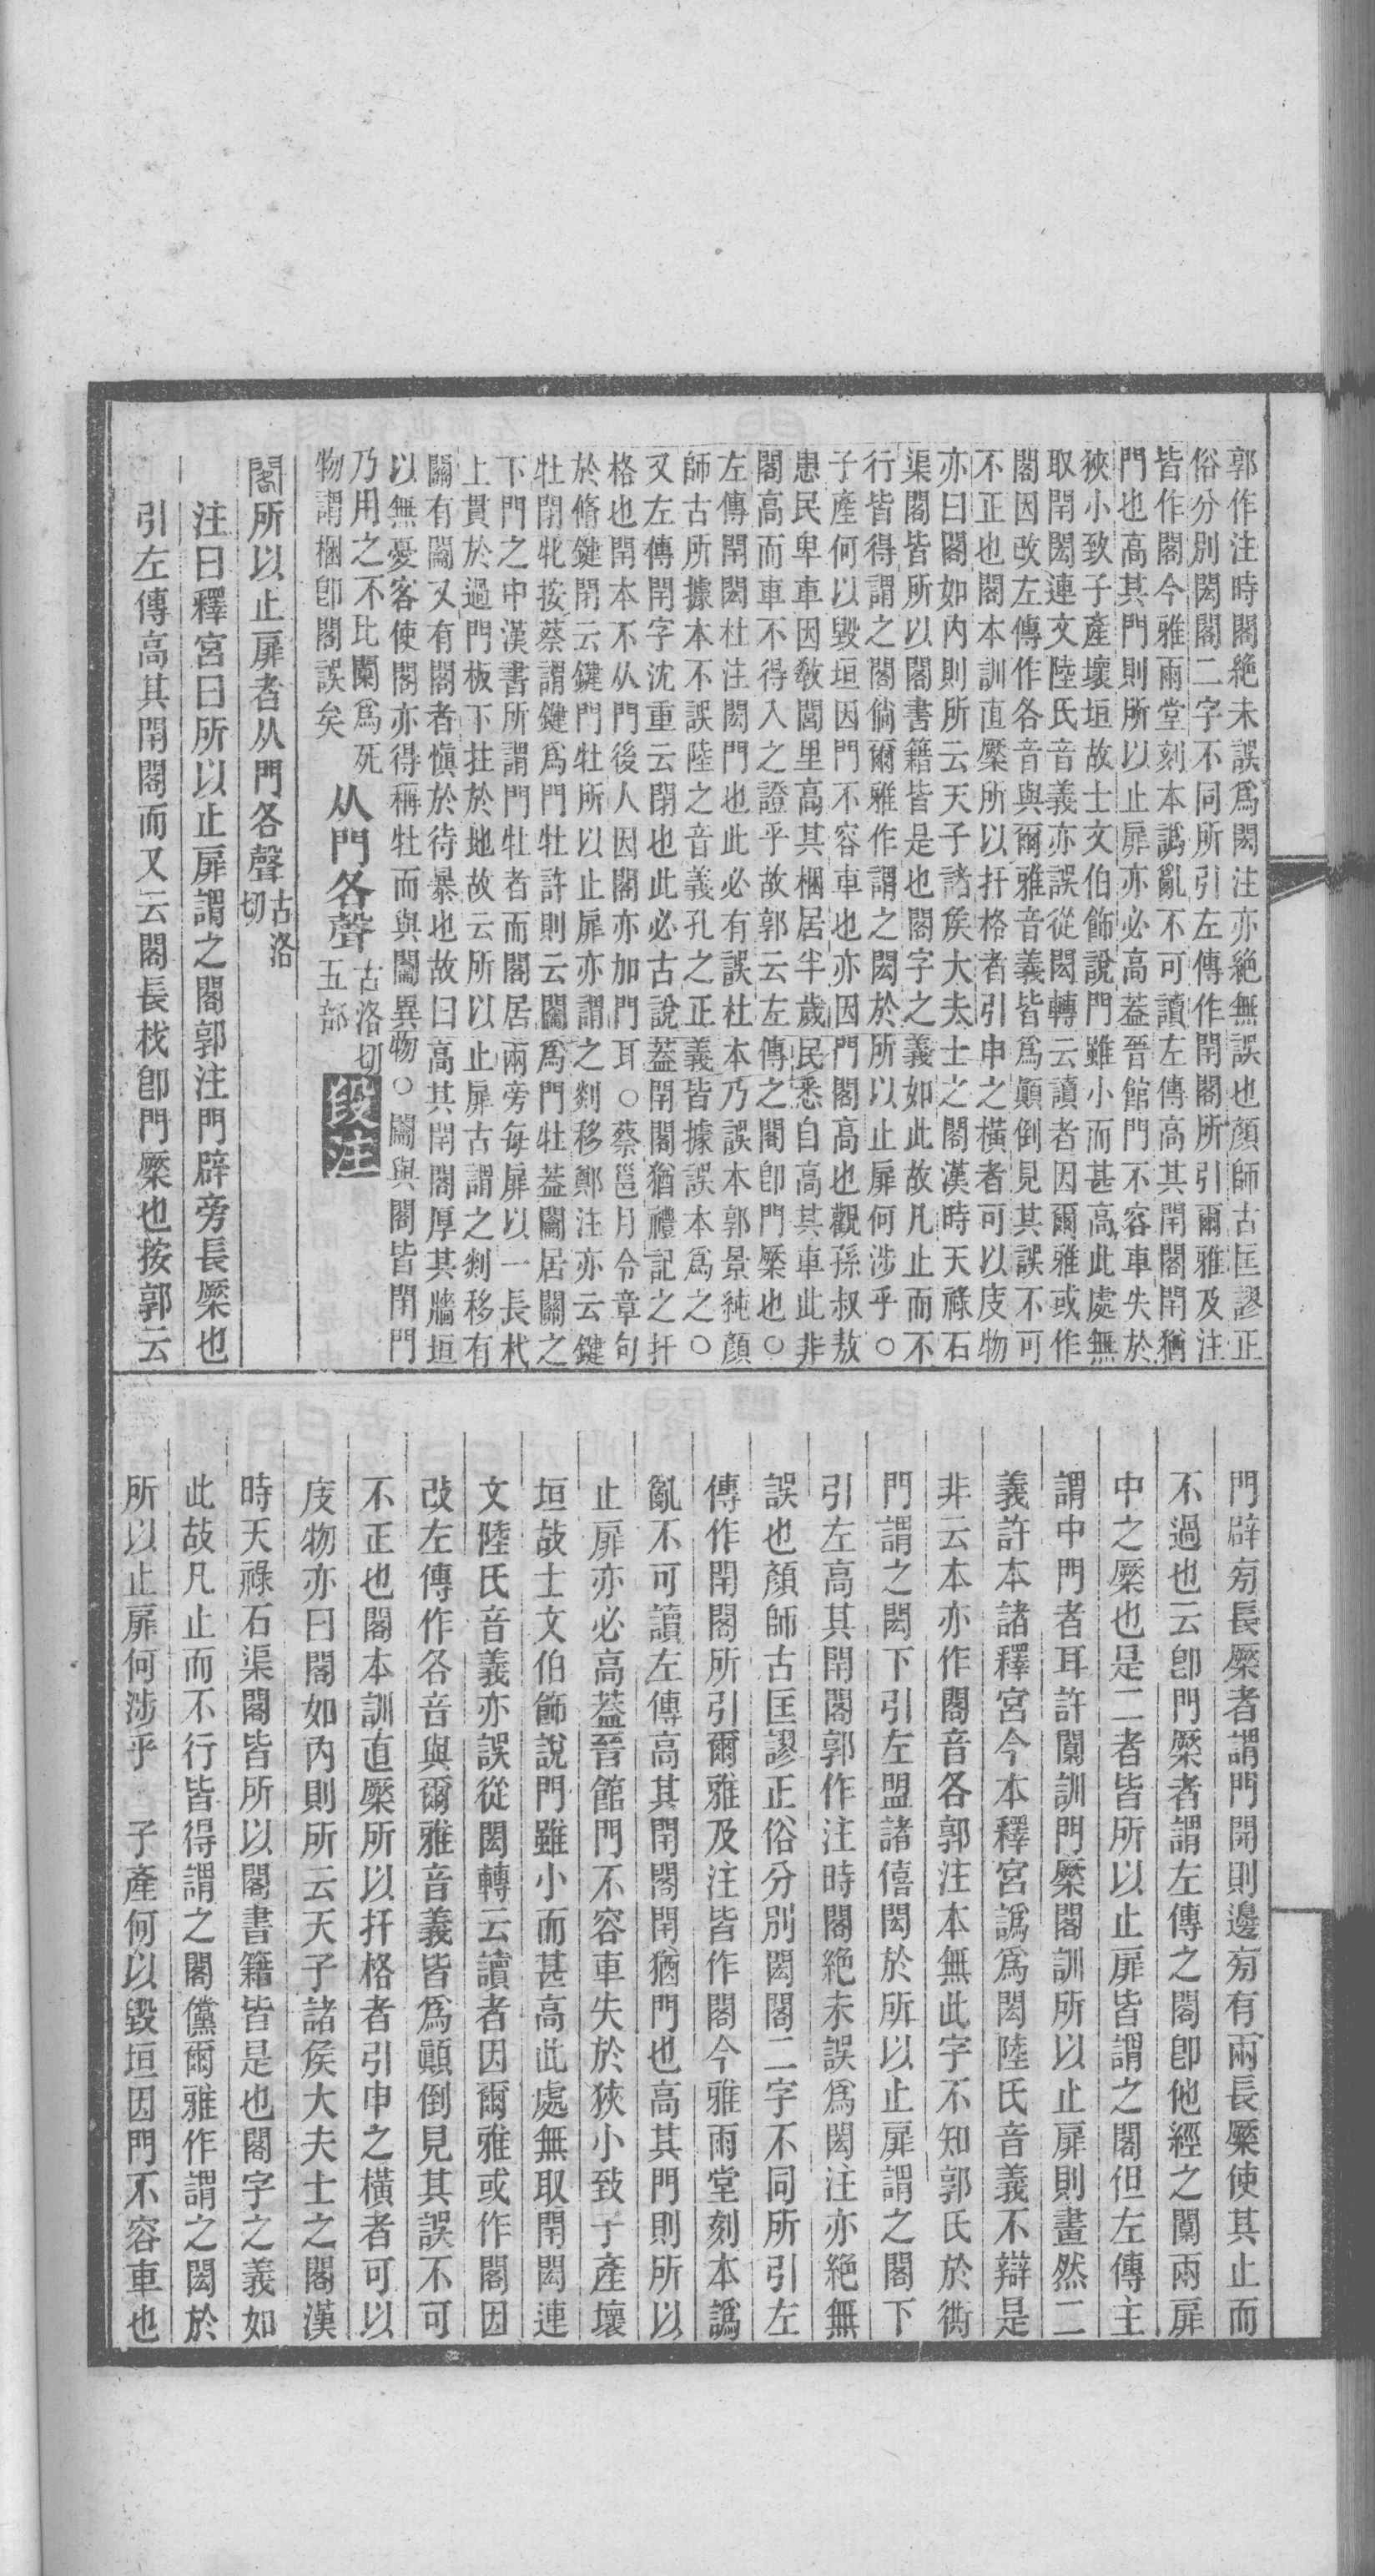 郭作注時閣絶未誤爲閎注亦絶無誤也顏師古匡謬正
俗分別閎閣二字不同所引左傳作閈閣所引爾雅及注
皆作閣今雅雨堂刻本譌亂不可讀左傳高其閈閣閈猶
門也高其門則所以止扉亦必高葢晉館門不容車失於
狹小致子產壞垣故士文伯飾說門雖小而甚高此處無
取閈閎連文陸氏音義亦誤從閎轉云讀者因爾雅或作
閣因改左傳作各音與爾雅音義皆爲顚倒見其誤不可
不正也閣本訓直橜所以扞格者引申之橫者可以庋物
亦曰閣如內則所云天子諸矦大夫士之閣漢時天祿石
渠閣皆所以閣書籍皆是也閣字之義如此故凡止而不
行皆得謂之閣倘爾雅作謂之閎於所以止扉何涉乎○
子產何以毀垣因門不容車也亦因門閣高也觀孫叔敖
患民卑車因敎閭里高其梱居半歲民悉自高其車此非
閣高而車不得入之證乎故郭云左傳之閣卽門橜也○
左傳閈閎杜注閎門也此必有誤杜本乃誤本郭景純顏
師古所據本不誤陸之音義孔之正義皆據誤本爲之○
又左傳閈字沈重云閉也此必古說葢閈閣猶禮記之扞
格也閈本不从門後人因閣亦加門耳○蔡邕月令章句
於脩鍵閉云鍵門牡所以止扉亦謂之剡移鄭注亦云鍵
牡閉牝按蔡謂鍵爲門牡許則云闔爲門牡葢闔居關之
下門之中漢書所謂門牡者而閣居兩旁每扉以一長杙
上貫於過門板下拄於地故云所以止扉古謂之剡移有
關有闔又有閣者愼於待暴也故曰高其閈閣厚其牆垣
以無憂客使閣亦得稱牡而與闔異物○闔與閣皆閉門
乃用之不比闑爲死
物謂梱卽閣誤矣 从門各聲 古洛切
五部 段注
閣所以止扉者从門各聲古洛
切
注曰釋宮曰所以止扉謂之閣郭注門辟旁長橜也
引左傳高其閈閣而又云閣長杙卽門橜也按郭云
門辟旁長橜者謂門開則邊旁有兩長橜使其止而
不過也云卽門橜者謂左傳之閣卽他經之闑兩扉
中之橜也是二者皆所以止扉皆謂之閣但左傳主
謂中門者耳許闑訓門橜閣訓所以止扉則畫然二
義許本諸釋宮今本釋宮譌爲閎陸氏音義不辯是
非云本亦作閣音各郭注本無此字不知郭氏於衖
門謂之閎下引左盟諸僖閎於所以止扉謂之閣下
引左高其閈閣郭作注時閣絶未誤爲閎注亦絶無
誤也顏師古匡謬正俗分別閎閣二字不同所引左
傳作閈閣所引爾雅及注皆作閣今雅雨堂刻本譌
亂不可讀左傳高其閈閣閈猶門也高其門則所以
止扉亦必高葢晉館門不容車失於狹小致子產壞
垣故士文伯飾說門雖小而甚高此處無取閈閎連
文陸氏音義亦誤從閎轉云讀者因爾雅或作閣因
改左傳作各音與爾雅音義皆爲顚倒見其誤不可
不正也閣本訓直橜所以扞格者引申之橫者可以
庋物亦曰閣如內則所云天子諸矦大夫士之閣漢
時天祿石渠閣皆所以閣書籍皆是也閣字之義如
此故凡止而不行皆得謂之閣儻爾雅作謂之閎於
所以止扉何涉乎 子產何以毀垣因門不容車也